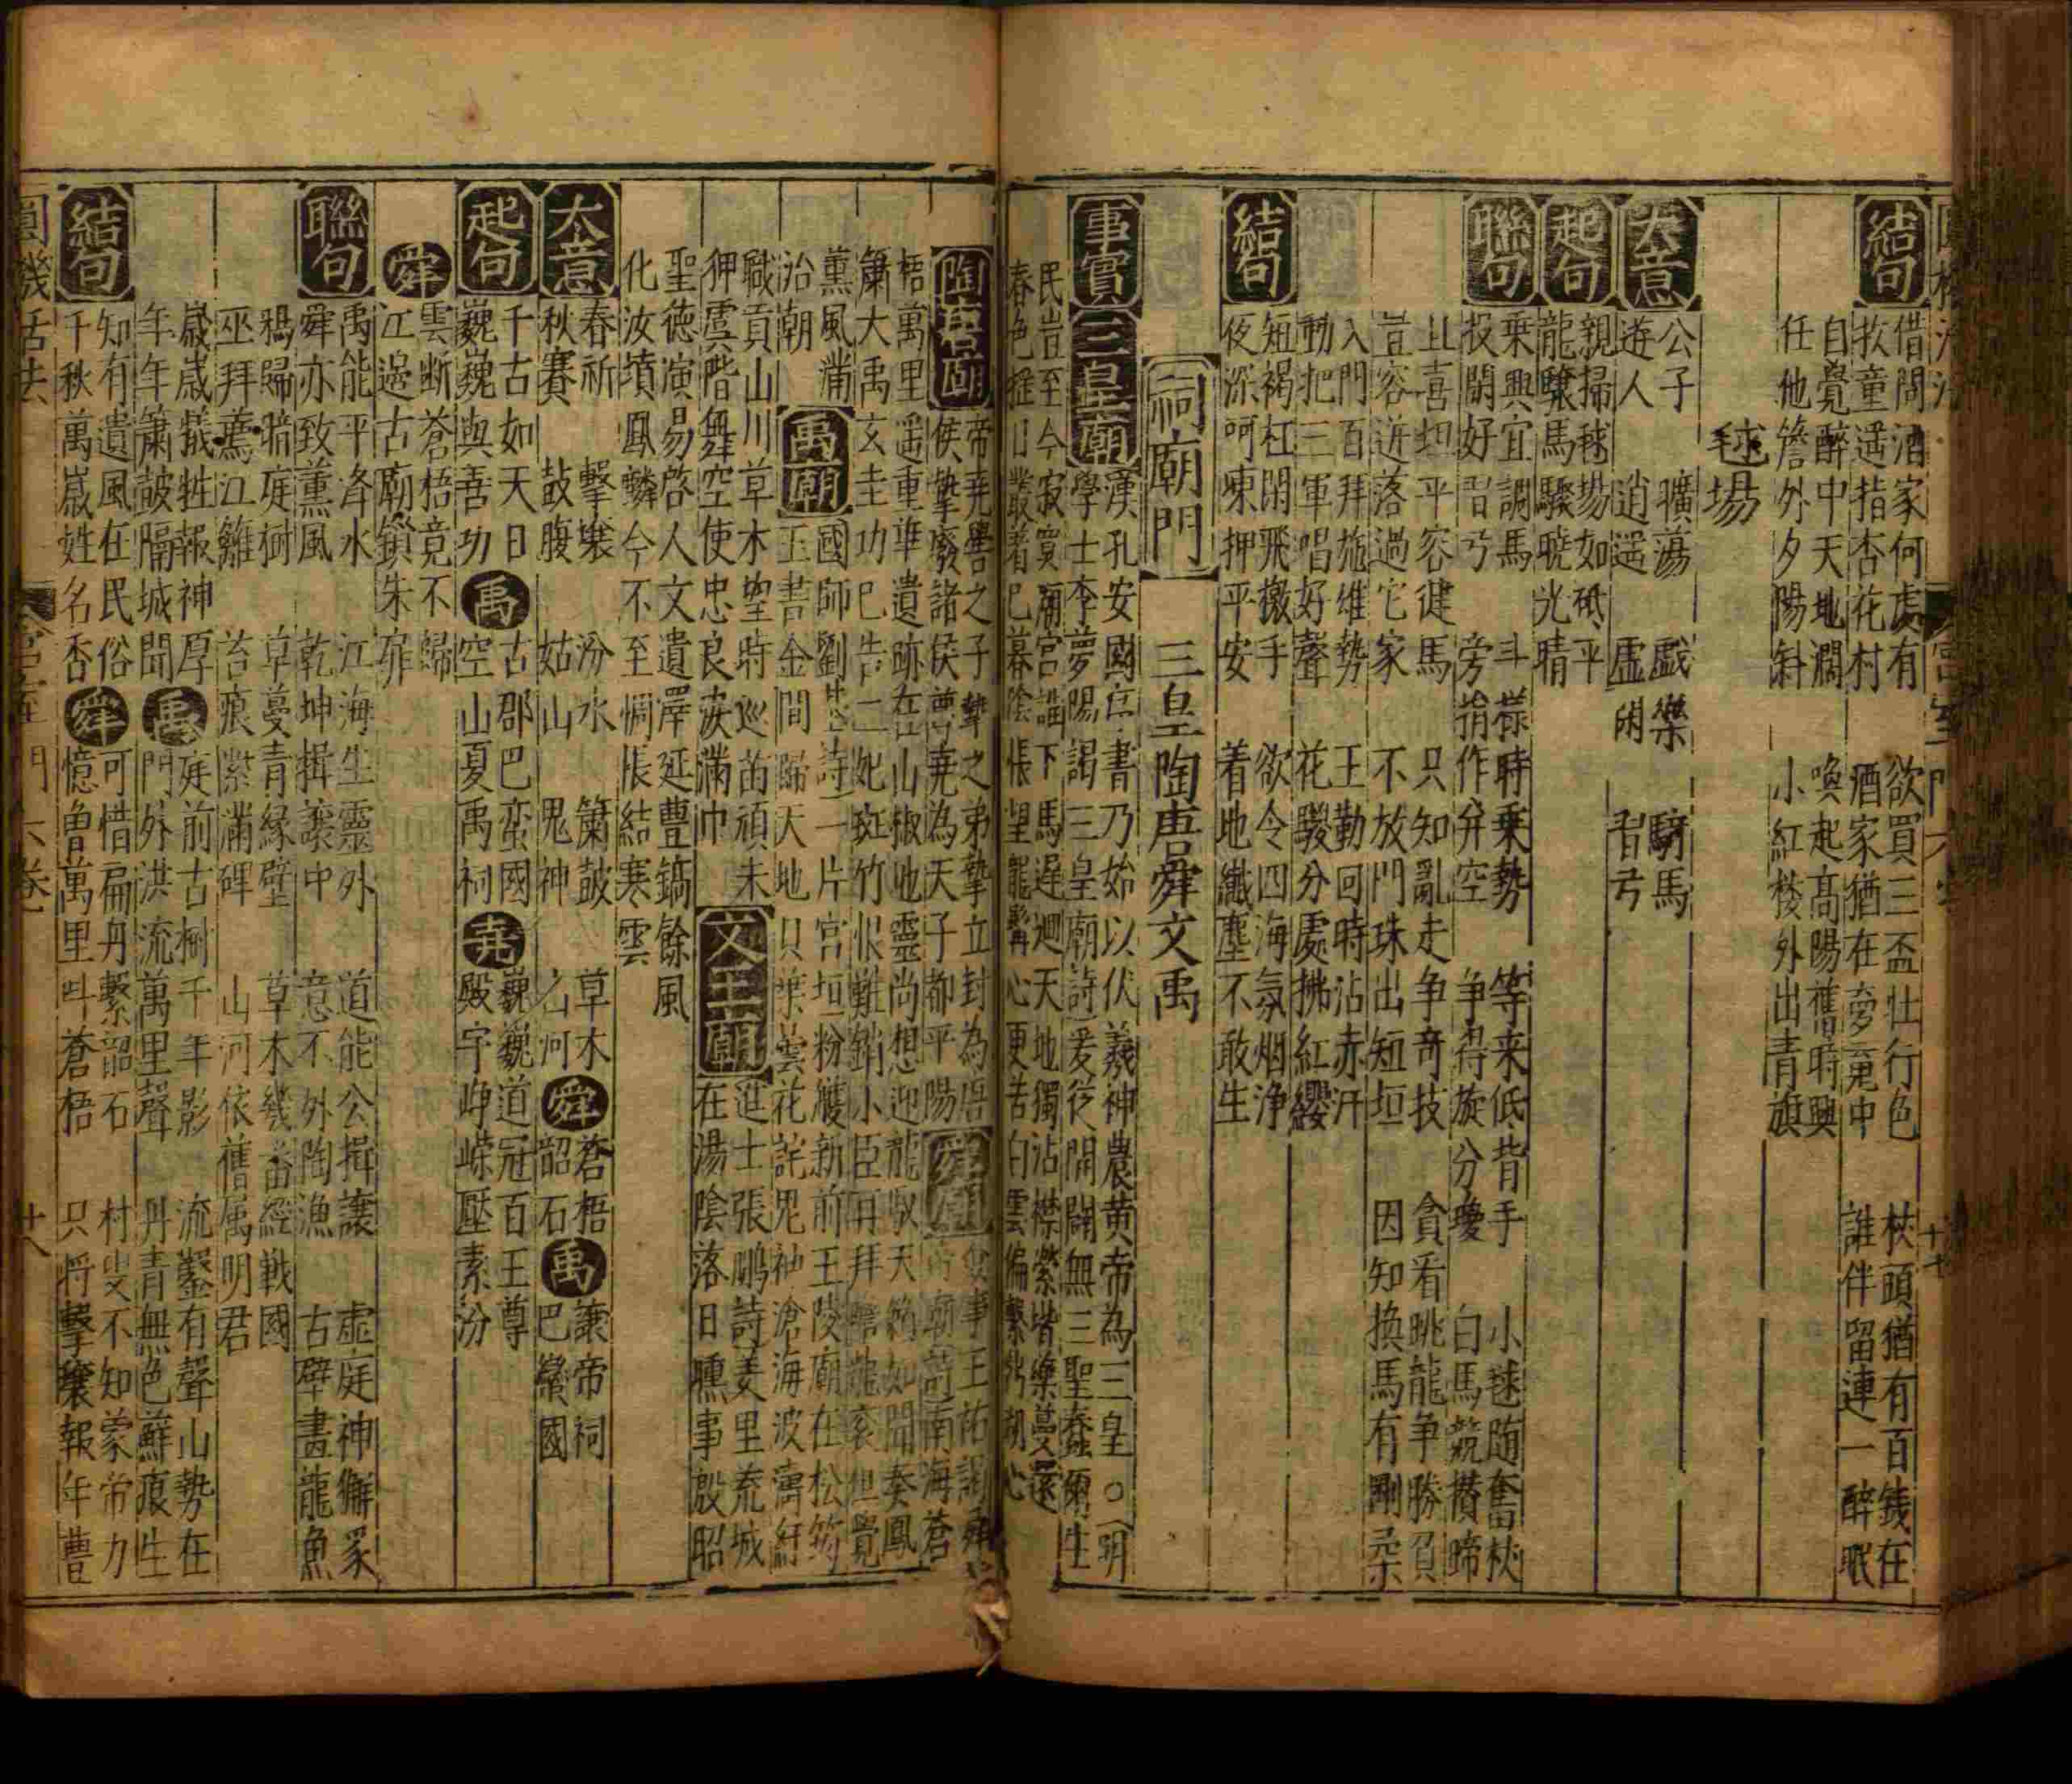 結句 借問酒家何處有 欲買三盃壯行色 杖頭猶有百錢在
牧童遥指杏花村 酒家猶在夢魂中 誰伴留連一醉眠
自覺醉中天地濶 喚起高陽舊時興
任他簷外夕陽斜 小紅楼外出青旗
毬場
大意 公子 曠蕩 戯樂 騎馬
遊人 逍遥 習弓
起句 親掃毬場如砥平
龍驤馬驟曉光晴
聯句 乗興宜調馬 斗様時乗勢 等来低背手 小毬随奮杖
投閑好習弓 旁捎作弁空 争得旋分瓊 白馬競攅蹄
且喜坦平容健馬 只知亂走争竒技 貪看眺龍争勝負
豈容迸落過它家 不放門珠出短垣 因知換馬有剛柔
入門百拜施雄勢 王勤回時沾赤汗
動把三軍唱好聲 花驄分處拂紅纓
結句 短褐杠閑飛撽手 欲令四海氛烟浄
夜深呵凍押平安 着地纎塵不敢生
祠廟門 三皇陶唐舜文禹
事實 三皇廟 漢孔安國序書乃始以伏羲神農黄帝為三皇○明
學士李夢陽謁三皇廟詩爰從開闢無三聖蠢爾生
民豈至今寂寞廟宮誰下馬遅廻天地獨沾襟縈堦藥蔓還
春色挂日叢蓍已暮陰悵望龍髯心更苦白雲偏繫鼎湖心
陶唐廟 帝堯嚳之子摯之弟摯立封為唐
侯摯廢諸侯尊堯為天子都平陽 舜廟 南海蒼
梧萬里遥重華遺跡在山椒地靈尚想迎龍馭天籟如聞奏鳳
簫大禹玄圭功已告二妃斑竹恨難銷小臣再拜瞻龍衮但覺
薫風滿 禹廟 國師劉基詩一片宮垣粉雘新前王陵廟在松筠
治朝 玉書金間歸天地只葉雲花詫鬼神滄海波濤紆
職貢山川草木望時巡苗頑未 文王廟 進士張鵬詩羑里荒城
狎虞階舞空使忠良淚滿巾 在湯陰落日曛事殷昭
聖徳演易啓人文遺澤延豊鎬餘風
化汝墳鳳麟今不至惆悵結寒雲
大意 春祈 擊壤 汾水 簫皷 草木 舜 蒼梧 禹 謙帝祠
秋賽 鼓腹 姑山 鬼神 山河 韶石 巴蠻國
起句 千古如天日 禹 古郡巴蛮國 堯 巍巍道冠百王尊
巍巍與善功 空山夏禹祠 殿宇峥嶸壓素汾
舜 雲断蒼梧竟不歸
江邊古廟鎖朱扉
聯句 禹能平洚水 江海生靈外 道能公揖譲 虚庭神獬豸
舜亦致薫風 乾坤揖譲中 意不外陶漁 古壁畫龍魚
鴉歸暗庭樹 草蔓青緣壁 草木幾番經戰國
巫拜薦江籬 苔痕紫滿碑 山河依舊属明君
歲歲犧牲報神厚 禹 庭前古樹千年影 流鑿有聲山勢在
年年簫皷隔城聞 門外洪流萬里聲 丹青無色蘚痕生
結句 知有遺風在民俗 舜 可惜扁丹繫韶石 村叟不知蒙帝力
千秋萬歲姓名香 憶曽萬里呌蒼梧 只将擊壤報年豊
圓機活法 宮室門六卷 十八